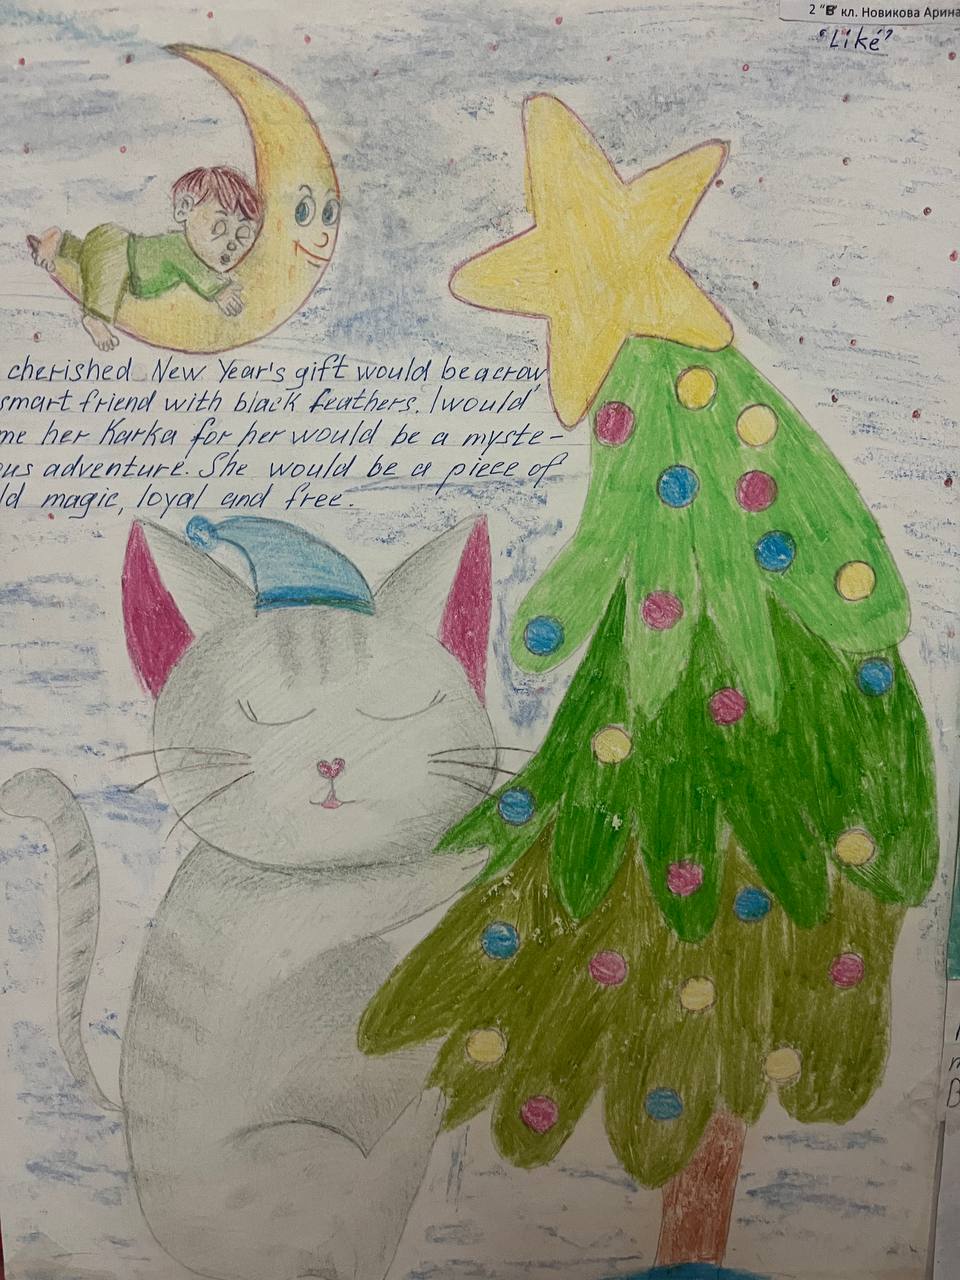 2 "В" кл. Новикова Арина
"Like"
cherished New Year's gift would be a crow
smart friend with black feathers. I would
me her Karka for her would be a myste-
ous adventure. She would be a piece of
ld magic, loyal and free.